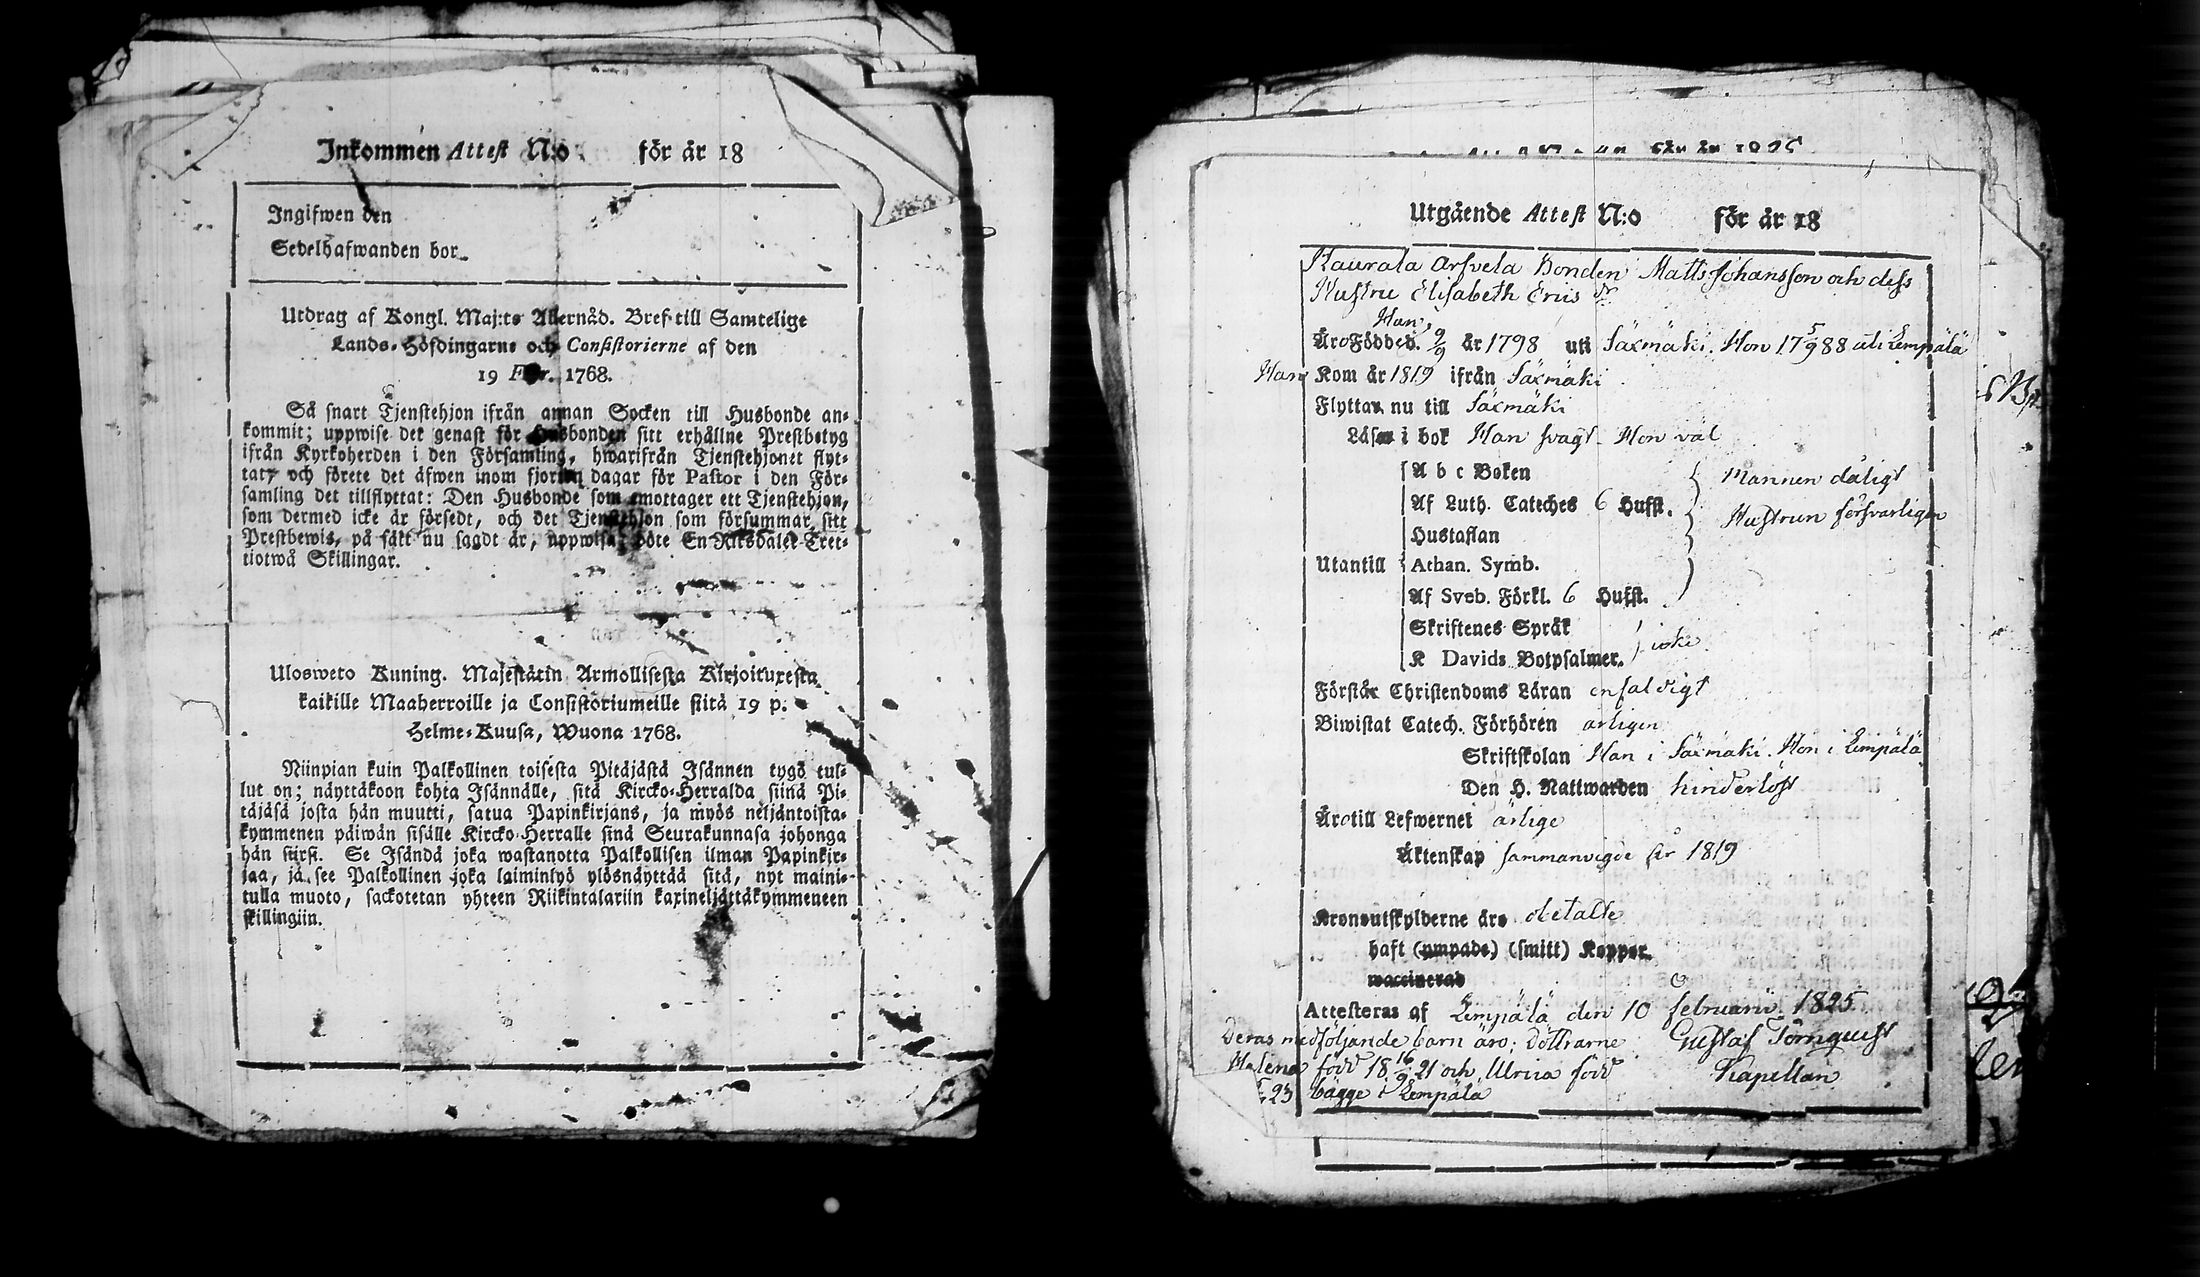 Inkommen Attest N:o för år 18
Ingifwen den
Sedelhafwanden bor
Utdrag af Kongl. Maj:ts Allernåd. Bref till Samtelige
Lands-Höfdingarne och Consistorierne af den
19 Febr. 1768.
Så snart Tjenstehjon ifrån annan Socken till Husbonde an-
kommit; uppwise det genast för Husbonden sitt erhållne Prestbetyg
ifrån Kyrkoherden i den Församling, hwarifrån Tjenstehjonet flyt-
tat, och förete det äfwen inom fjorton dagar för Pastor i den För-
samling det tillflyttat: Den Husbonde som emottager ett Tjenstehjon,
som dermed icke är försedt, och det Tjenstehjon som försummar sitt
Prestbewis, på sätt nu sagdt är, uppwisa, böte En Riksdaler Tret-
tiotwå Skillingar.
Ulosweto Kuning. Majestätin Armollisesta Kirjoituxesta
kaikille Maaherroille ja Consistoriumeille siitä 19 p.
Helme-Kuusa, Wuona 1768.
Niinpian kuin Palkollinen toisesta Pitäjästä Isännen tygö tul-
lut on; näyttäkoon kohta Isännälle, sitä Kircko-Herralda siinä Pi-
täjäsä josta hän muutti, saatua Papinkirjans, ja myös neljäntoista-
kymmenen päiwän sisälle Kircko-Herralle siinä Seurakunnasa johonga
hän siirsi. Se Isändä joka wastanotta Palkollisen ilman Papinkir-
jaa, ja see Palkollinen joka laiminlyö ylösnäyttää sitä, nyt maini-
tulla muoto, sackotetan yhteen Riikintalariin kaxineljättäkymmeneen
skillingiin.
Utgående Attest N:o för år 18
Kaurala Arfvela Bonden Matts Johansson och dess
Hustru Elisabeth Eriis dr
Han
Äro Födde d. 9/9 år 1798 uti Säxmäki. Hon 17 5/9 88 uti Lempälä
Han Kom år 1819 ifrån Säxmäki
Flyttar nu till Säxmäki
Läser i bok Han svagt. Hon väl
A b c Boken Mannen dåligt
Af Luth. Cateches 6 Hufst. Hustrun försvarligen
Hustaflan
Utantill Athan. Symb.
Af Sveb. Förkl. 6 Hufst.
Skriftenes Språk
K Davids Botpsalmer. icke
Förstår Christendoms Läran enfaldigt
Biwistat Catech. Förhören årligen
Skriftskolan Han i Säxmäki. Hon i Lempälä
Den H. Nattwarden hinderlöst
Äro till Lefwernet ärlige
Äktenskap sammanvigde år 1819
Kronoutskylderne äro betalte
haft (ympade) (smitt) Koppor.
waccinerad
Attesteras af Lempälä den 10 februarii 1825
Deras medföljande barn äro; döttrarne Gustaf Törnquist
Helena född 18 16/9 21 och Ulrica född Kapellan
23 bägge i Lempälä